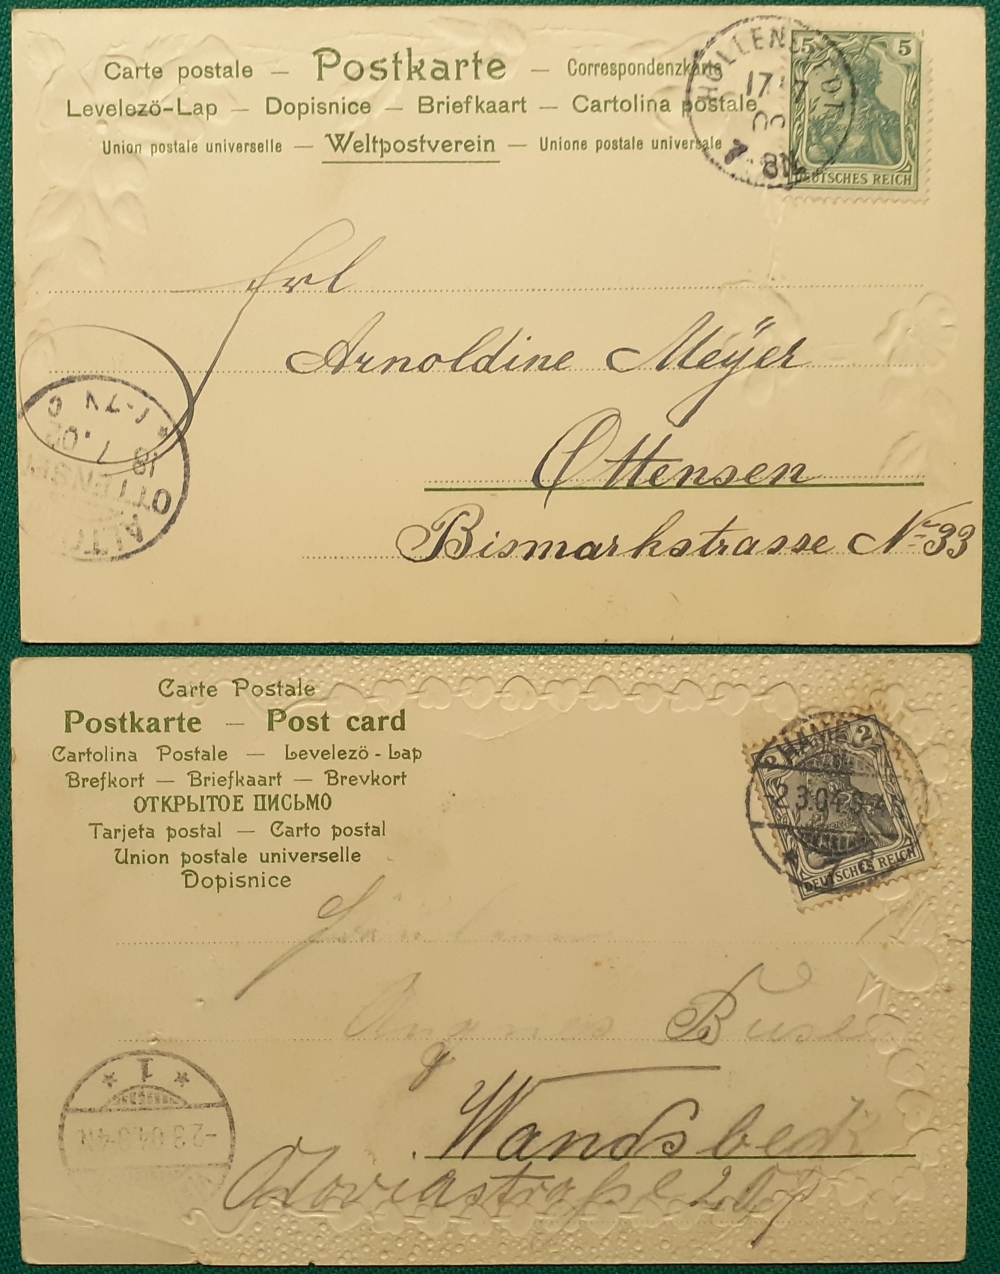 Carte postale — Postkarte — Correspondenzkarte
Levelezö-Lap — Dopisnice — Briefkaart — Cartolina postale
Union postale universelle — Weltpostverein — Unione postale universale
HOLLENSTEDT
17 7
7-8N
5 5
DEUTSCHES REICH
Frl
Arnoldine Meÿer
Ottensen
Bismarkstrasse No 33
OTTENSEN
18 7.02
1-2N
Carte Postale
Postkarte — Post card
Cartolina Postale — Levelezö - Lap
Brefkort — Briefkaart — Brevkort
ОТКРЫТОЕ ПИСЬМО
Tarjeta postal — Carto postal
Union postale universelle
Dopisnice
2
-2.3.04.
DEUTSCHES REICH
Fräulein
Agnes
Wandsbeck
* 1 *
-2.3.04.3-4N